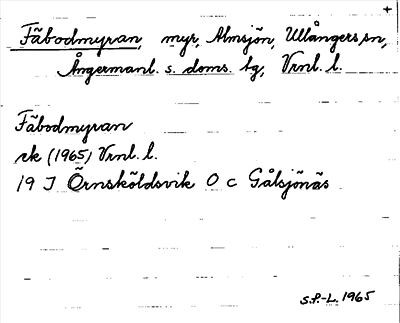 Fäbodmyran, myr, Almsjön, Ullångers sn,
Ångermanl. s. doms. tg, Vrnl. l.
Fäbodmyran
rk (1965) Vrnl. l.
19 J Örnsköldsvik O c Gålsjönäs
S.P.-L. 1965